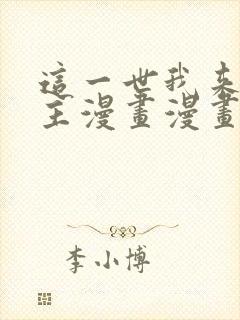 這一世我來
主漫畫漫畫
李小博